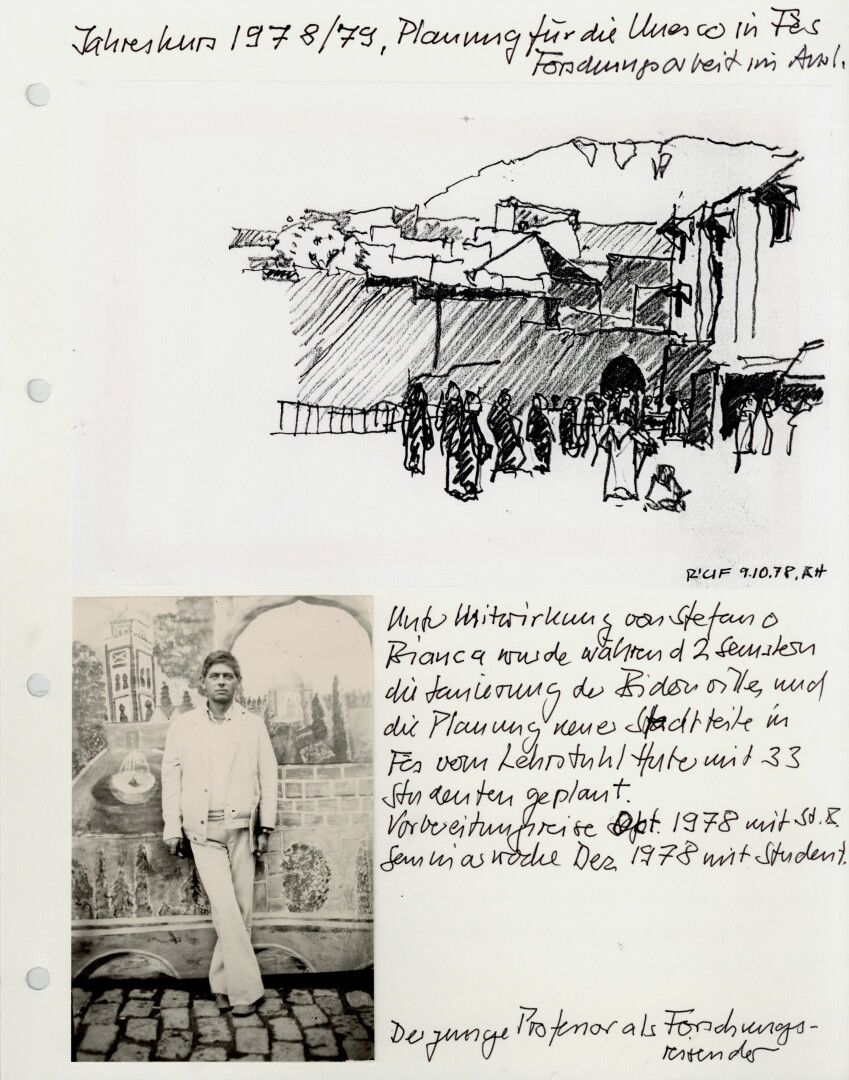 Jahreskurs 1978/79, Planung für die Unesco in Fès
Forschungsarbeit im Ausl.
R'CIF 9.10.78, BH
Unter Mitwirkung von Stefano
Bianca wurde während 2 Semestern
die Sanierung der Bidonvilles und
die Planung neuer Stadtteile in
Fès vom Lehrstuhl Huber mit 33
Studenten geplant.
Vorbereitungsreise Sept. 1978 mit St. B.
Seminarwoche Dez 1978 mit Student.
Der junge Professor als Forschungs-
reisender